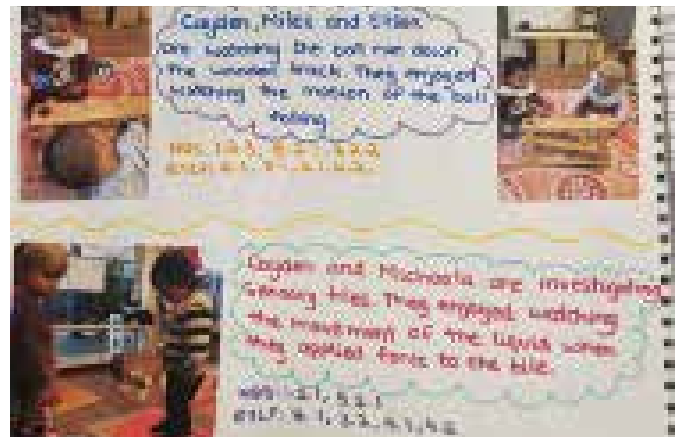 Cayden, Miles and
are watching the ball run down
the wooden track. They enjoyed
watching the motion of the ball
rolling
NQS:
EYLF:
Cayden and Michaela are investigating
sensory tiles. They enjoyed watching
the movement of the liquid when
they applied force to the tile.
NQS:
EYLF: